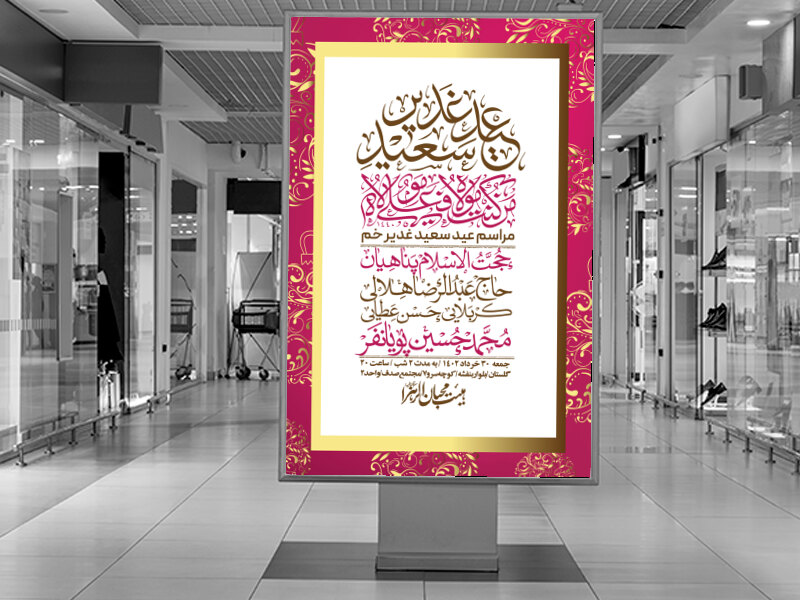 عید سعید غدیر
من کنت مولاه فهذا علی مولاه
مراسم عید سعید غدیر خم
حجت الاسلام پناهیان
حاج عبدالرضا هلالی
کربلایی حسن عطایی
محمدحسین پویانفر
جمعه ۳۰ خرداد ۱۴۰۲ / به مدت ۲ شب / ساعت ۲۰
گلستان/بلوار بنفشه/کوچه سرو۷/مجتمع صدف/واحد۲
هیئت محبان الزهرا